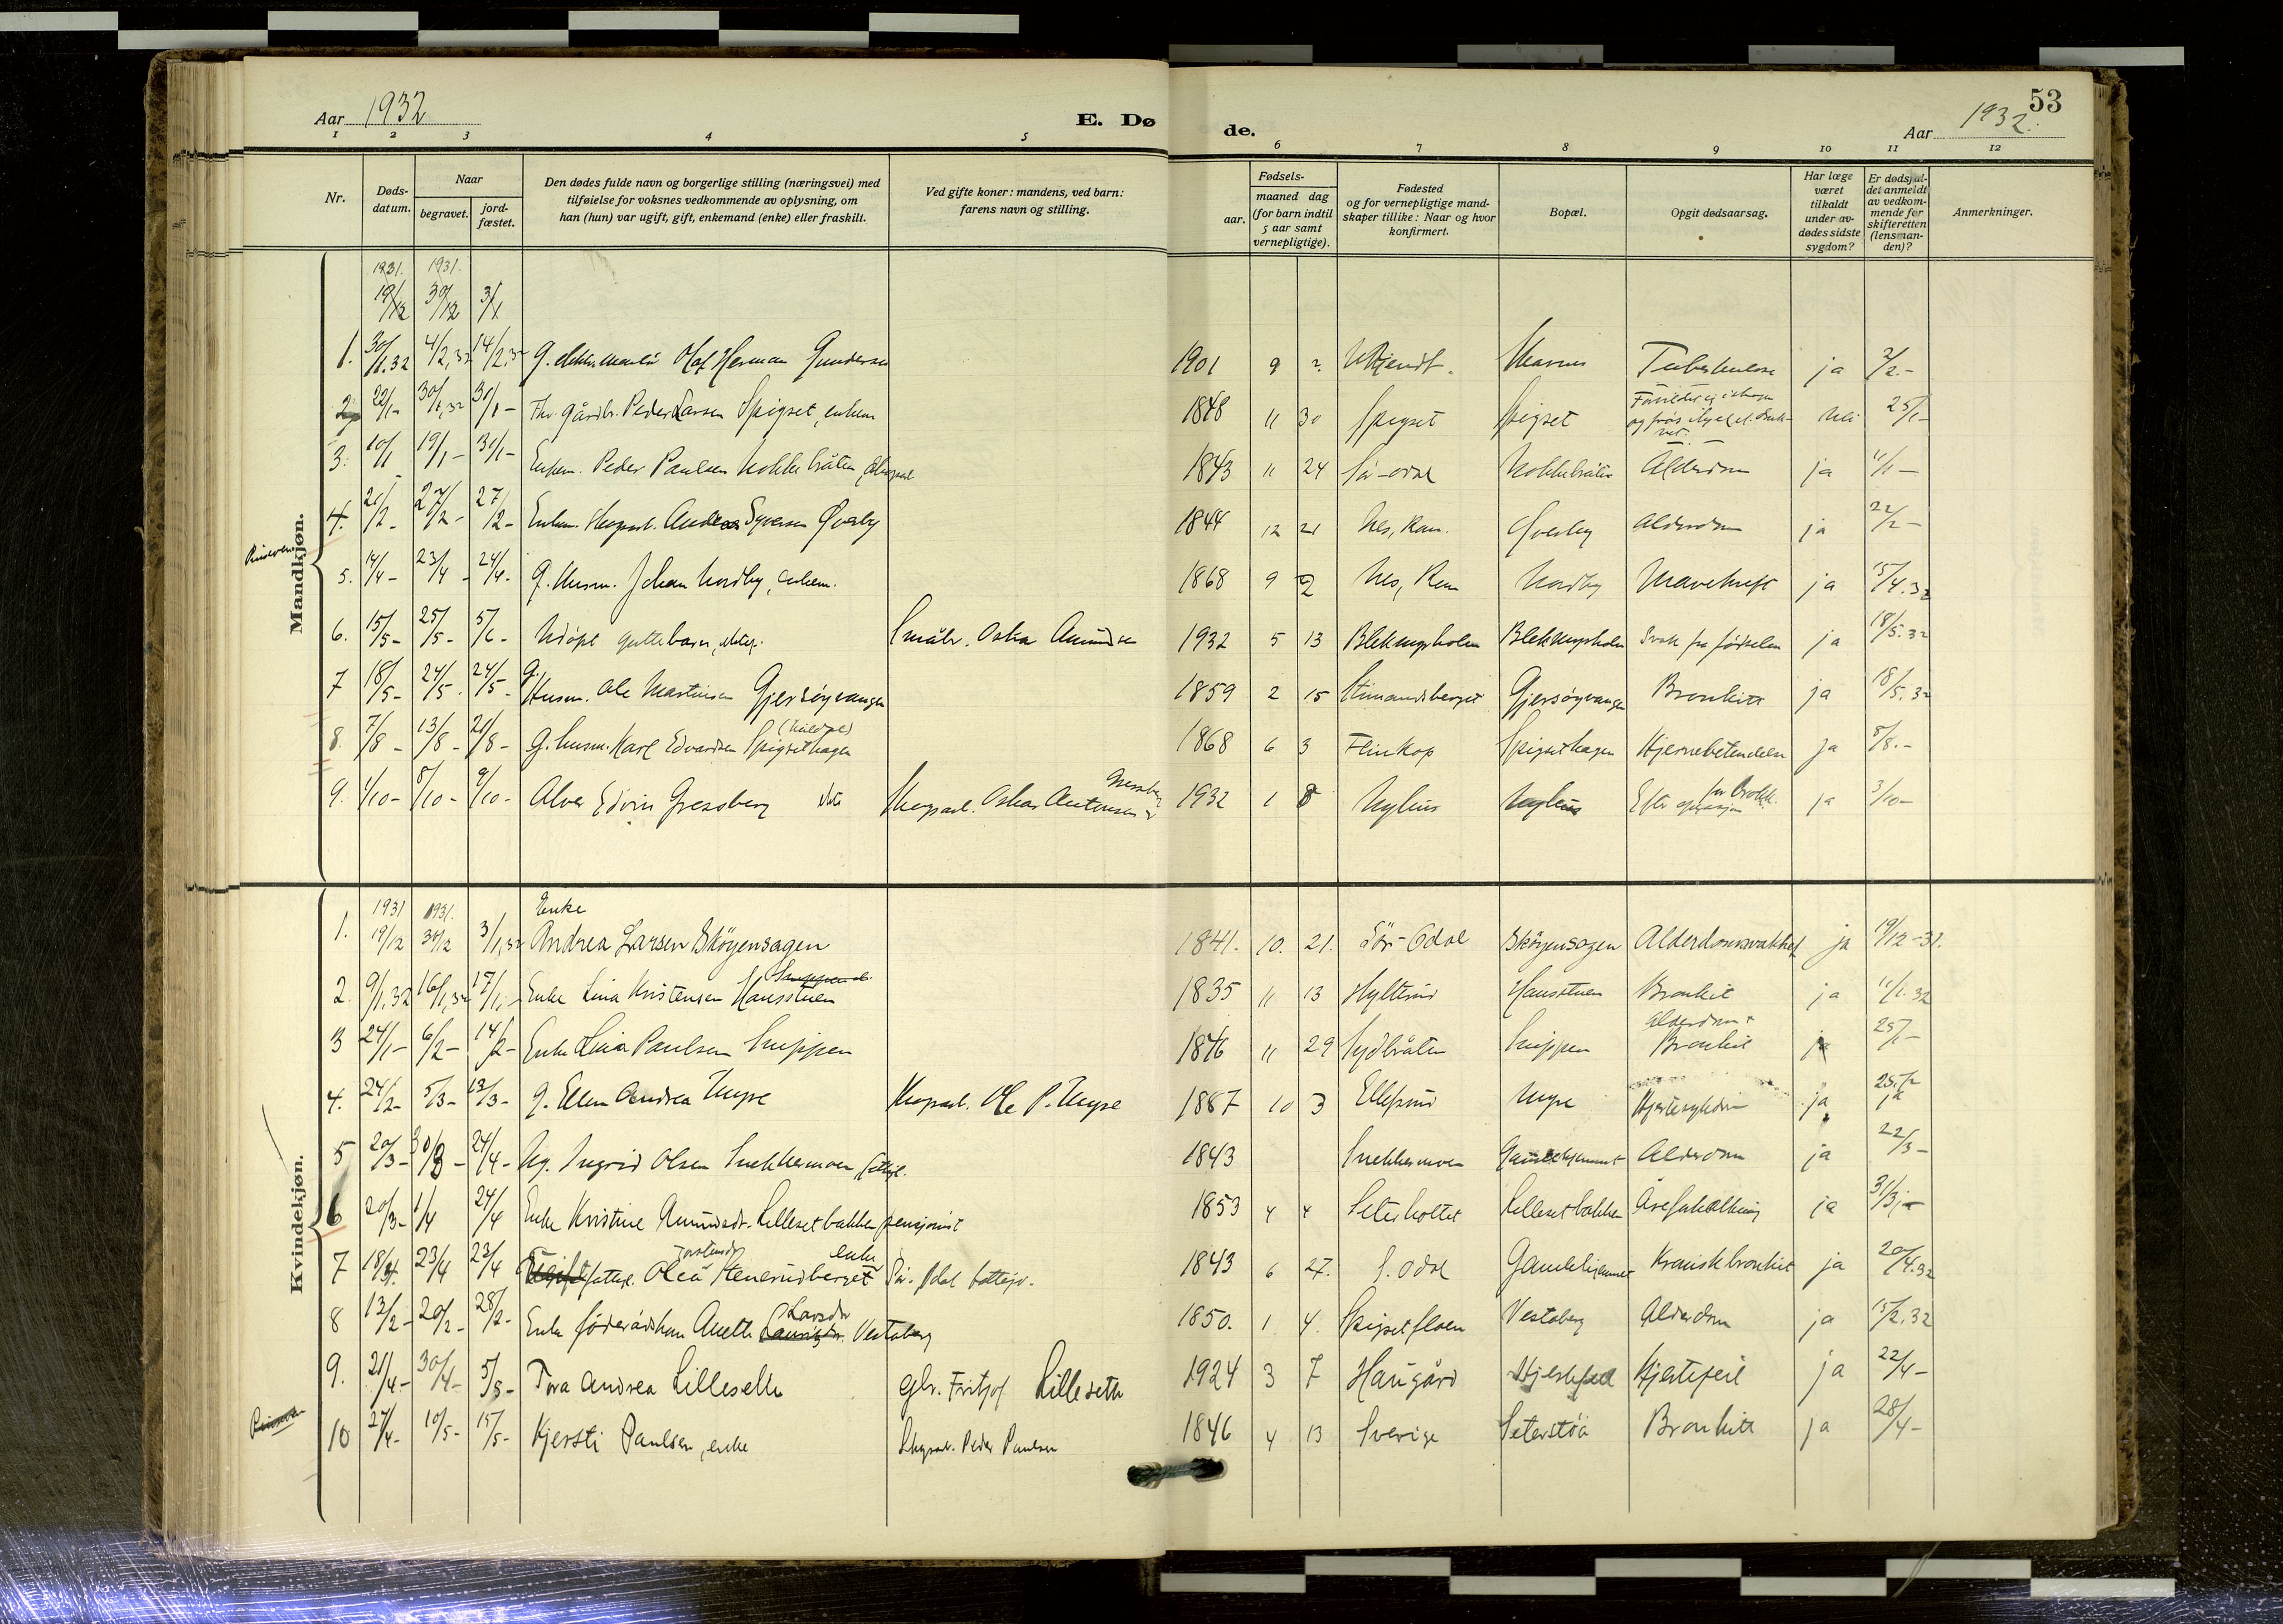 Aar 1932
E. Dø
de.
Aar 1932.
53
1 2 3 4 5 6 7 8 9 10 11 12
Nr.
Døds-
datum.
Naar
begravet.
jord-
fæstet.
Den dødes fulde navn og borgerlige stilling (næringsvei) med
tilføielse for voksnes vedkommende av oplysning, om
han (hun) var ugift, gift, enkemand (enke) eller fraskilt.
Ved gifte koner: mandens, ved barn:
farens navn og stilling.
Fødsels-
aar.
maaned dag
(for barn indtil
5 aar samt
vernepligtige).
Fødested
og for vernepligtige mand-
skaper tillike: Naar og hvor
konfirmert.
Bopæl.
Opgit dødsaarsag.
Har læge
været
tilkaldt
under av-
dødes sidste
sygdom?
Er dødsfal-
det anmeldt
av vedkom-
mende for
skifteretten
(lensman-
den)?
Anmerkninger.
Mandkjøn.
1931. 1931.
19/12 30/12 3/1
1. 30/1.32 4/2,32 14/2.32 G. Olaf Herman Gundersen 1901 9 ? Ukjendt. Tuberkulose ja 2/2.-
2 22/1- 30/1,32 30/1- Fhv. gårdbr. Peder Larsen Spigset, enkem 1848 11 30 Spigset Spigset Nei 25/1-
3. 10/1 19/1- 31/1- Enkem. Peder Paulsen 1843 11 24 Sör-Odal Alderdom ja 11/1-
4. 21/2- 27/2- 27/2- Enkem. Skogsarb. Anders Syversen Overby 1844 12 21 Nes, Rom. Overby Alderdom ja 22/2-
5. 14/4- 23/4- 24/4- G. Husm. Johan Nordby, enkem. 1868 9 2 Nes, Rom Nordby Mavekreft ja 15/4.32
6. 15/5- 25/5- 5/6- Udöpt guttebarn, ekte. Småbr. Oskar Amundsen 1932 5 13 Blekmyrholen Blekmyrholen Svak fra födselen ja 18/5.32
7 18/5- 24/5- 24/5- G. Husm. Ole Martinsen Gjersöyvangen 1859 2 15 Stimandsberget Gjersöyvangen Bronkitt ja 18/5.32
8. 7/8- 13/8- 21/8- G. husm. Karl Edvardsen Spigsethagen 1868 6 3 Flinkop Spigsethagen Hjernebetendelse ja 8/8.-
9. 1/10- 8/10- 9/10- Alver Edvin Gressberg ekte Skogsarb. Oskar Antonsen 1932 1 8 Nyhus Nyhus Efter operasjon for brokk. ja 3/10-
Kvindekjøn.
1931 1931. Enke
1. 19/12 30/12 3/1,32 Andrea Larsen Sköyensagen 1841. 10. 21. Sör-Odal Sköyensagen Alderdomssvakhet ja 19/12-31.
2. 9/1,32 16/1,32 17/1,- Enke Lina Kristensen Hansstuen 1835 11 13 Hansstuen Bronkit ja 11/1.32
3 24/1- 6/2- 14/2- Enke Lina Paulsen Snippen 1846 11 29 Sydbråten Snippen Alderdom + Bronkit ja 25/1-
4. 24/2- 5/3- 13/3- G. Ellen Andrea Myre Skogsarb. Ole P. Myre 1887 10 3 Myre Hjertesykdom ja 25/2
5 20/3- 24/4- Ug. Ingrid Olsen Snekkermoen 1843 Snekkermoen Gamlehjemmet Alderdom ja 22/3-
6 20/3- 1/4 24/4 Enke Kristine Amundsdr. Lillesetbakken pensjonist 1853 4 4 Seterholtet Lillesetbakken Åreforkalkning ja 31/3-
7 18/4. 23/4 23/4 fattigl. Olea Stenerudberget enke Sör-Odal fattigv. 1843 6 27. S. Odal Gamlehjemmet Kronisk bronkit ja 20/4.32
8 13/2- 20/2- 28/2- Enke föderådskone Anette Larsdr Vestaberg 1850. 1 4. Spigsetfloen Vestaberg Alderdom ja 15/2.32
9. 21/4- 30/4- 5/5- Tora Andrea Lilleseth gbr. Fritjof Lilleseth 1924 3 7 Haugård Hjertefeil ja 22/4-
10 27/4- 10/5- 15/5- Kjersti Paulsen, enke Skogsarb. Peder Paulsen 1846 4 13 Sverige Seterstöa Bronkitt ja 28/4-